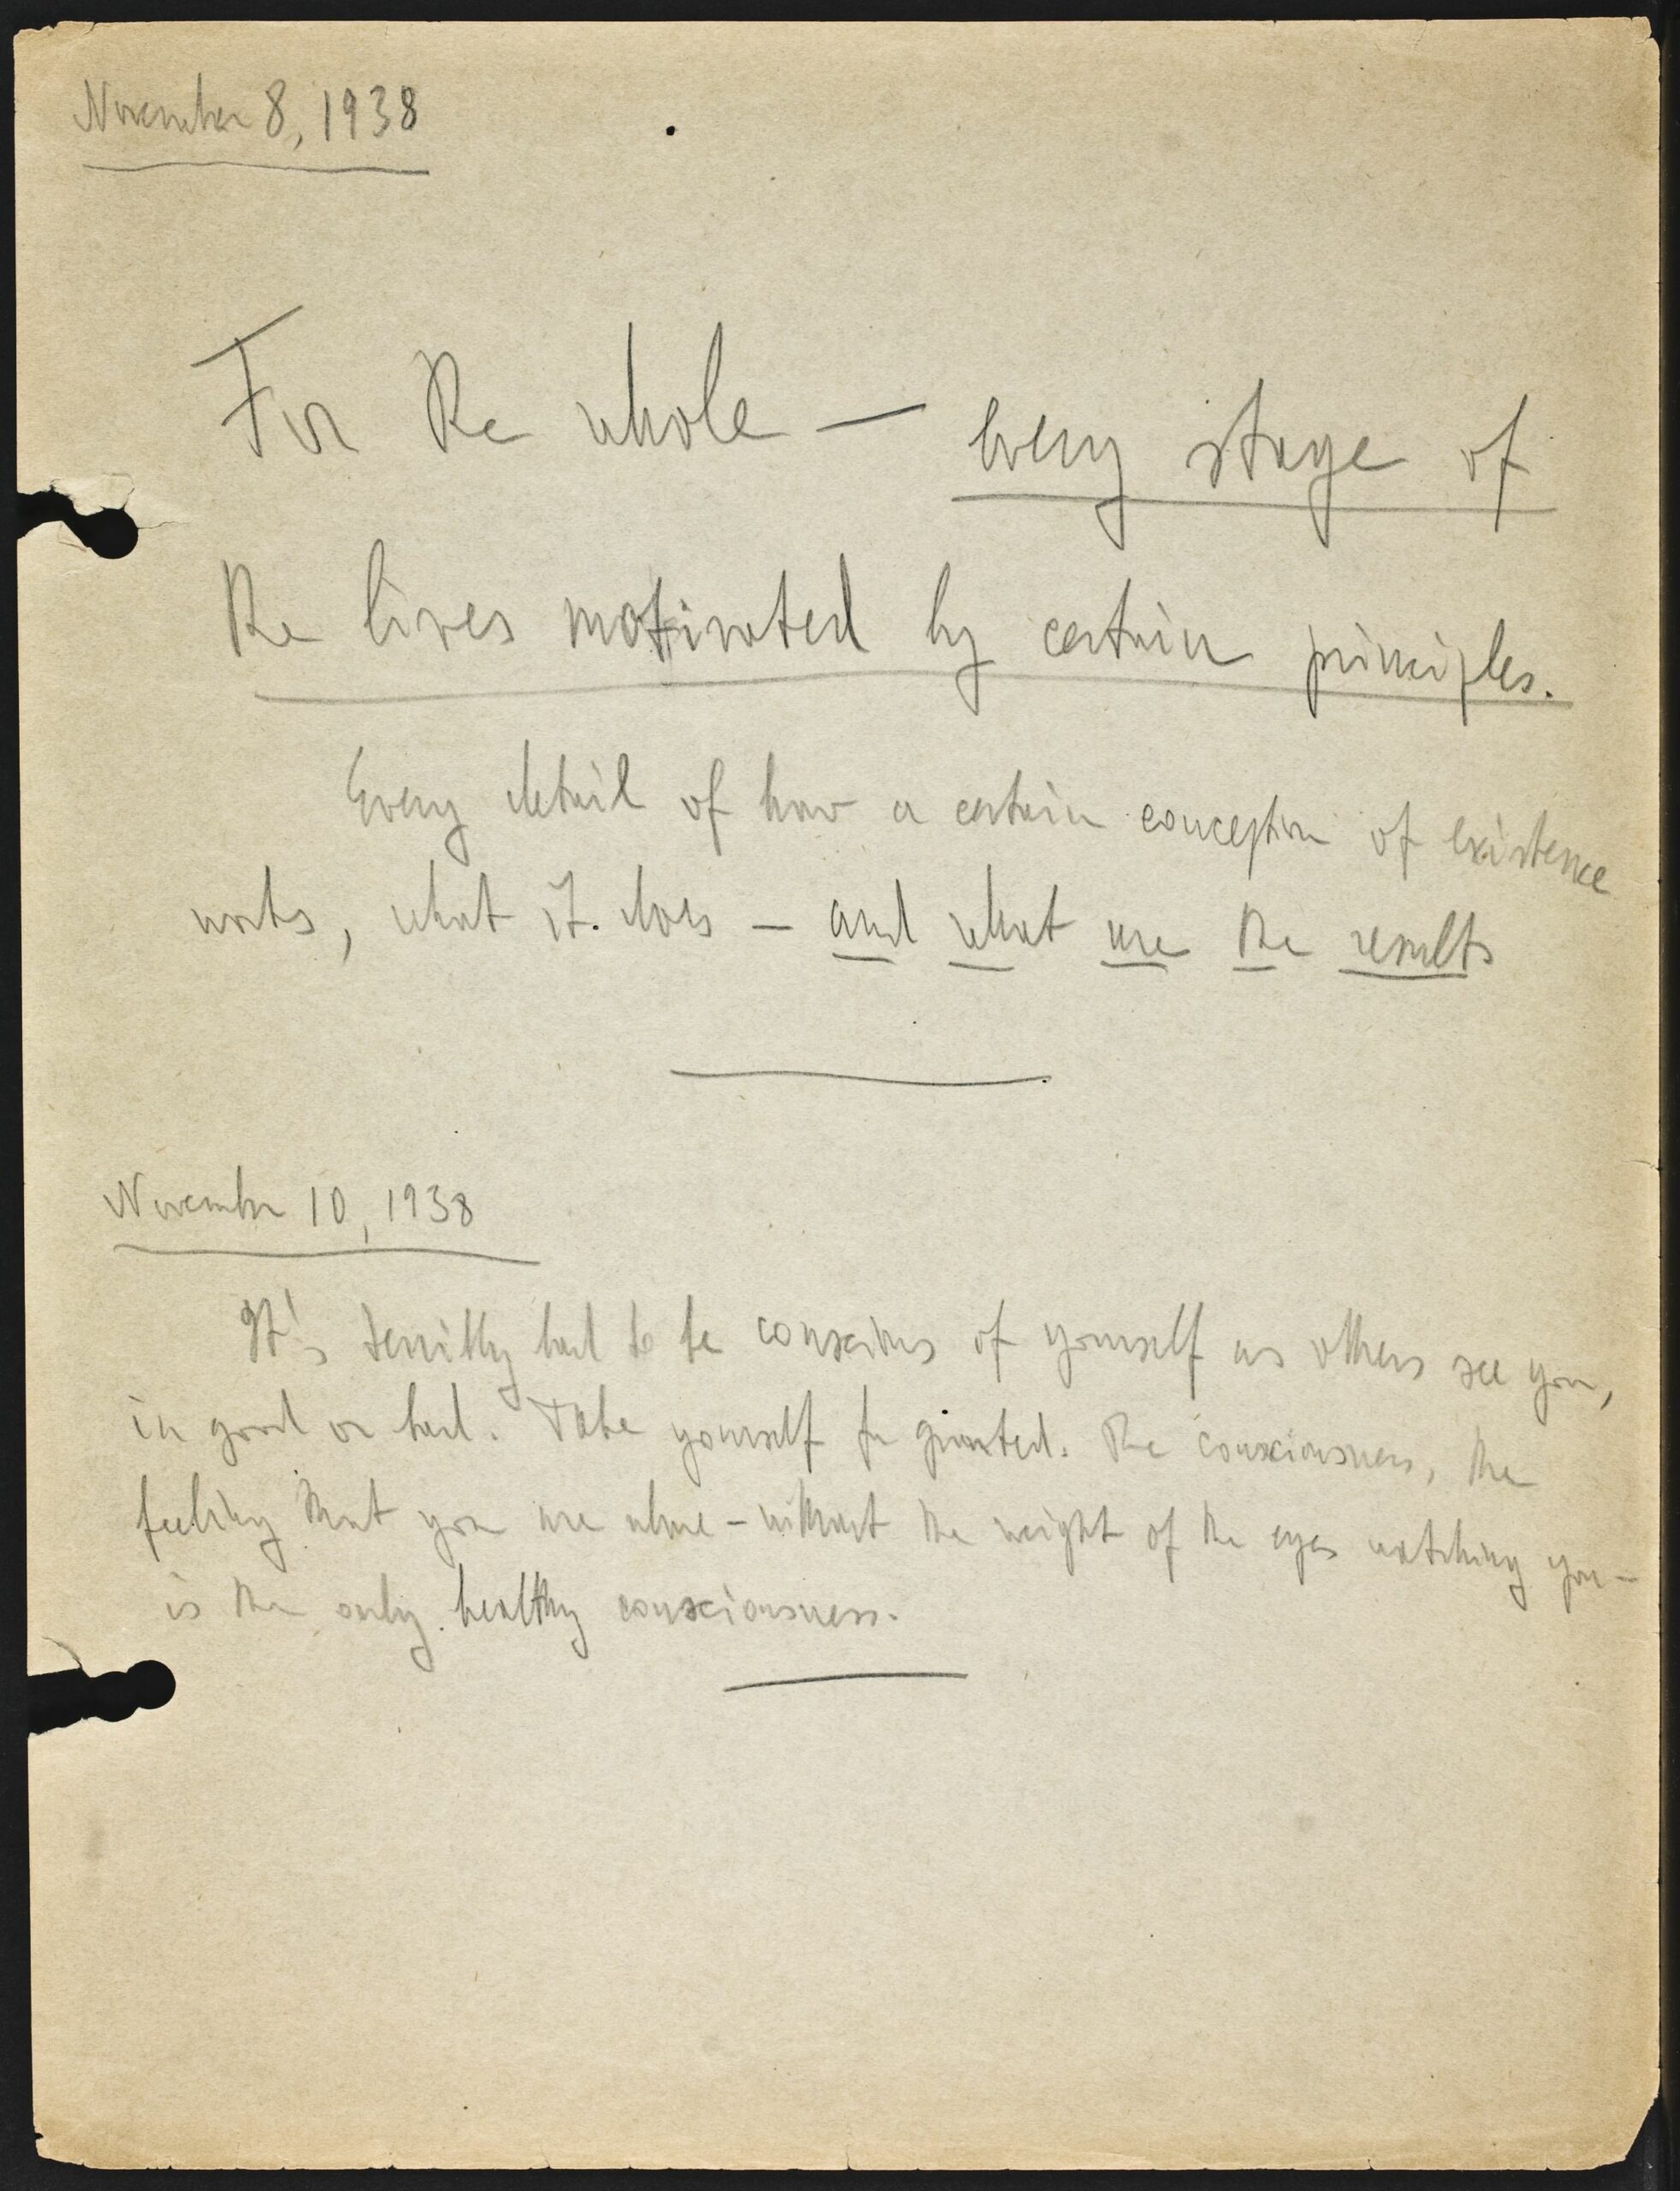 November 8, 1938
For the whole — every stage of
the lives motivated by certain principles.
Every detail of how a certain conception of existence
works, what it does — and what are the results
November 10, 1938
It's terribly bad to be conscious of yourself as others see you,
in good or bad. Take yourself for granted. The consciousness, the
feeling that you are alone – without the weight of the eyes watching you –
is the only healthy consciousness.